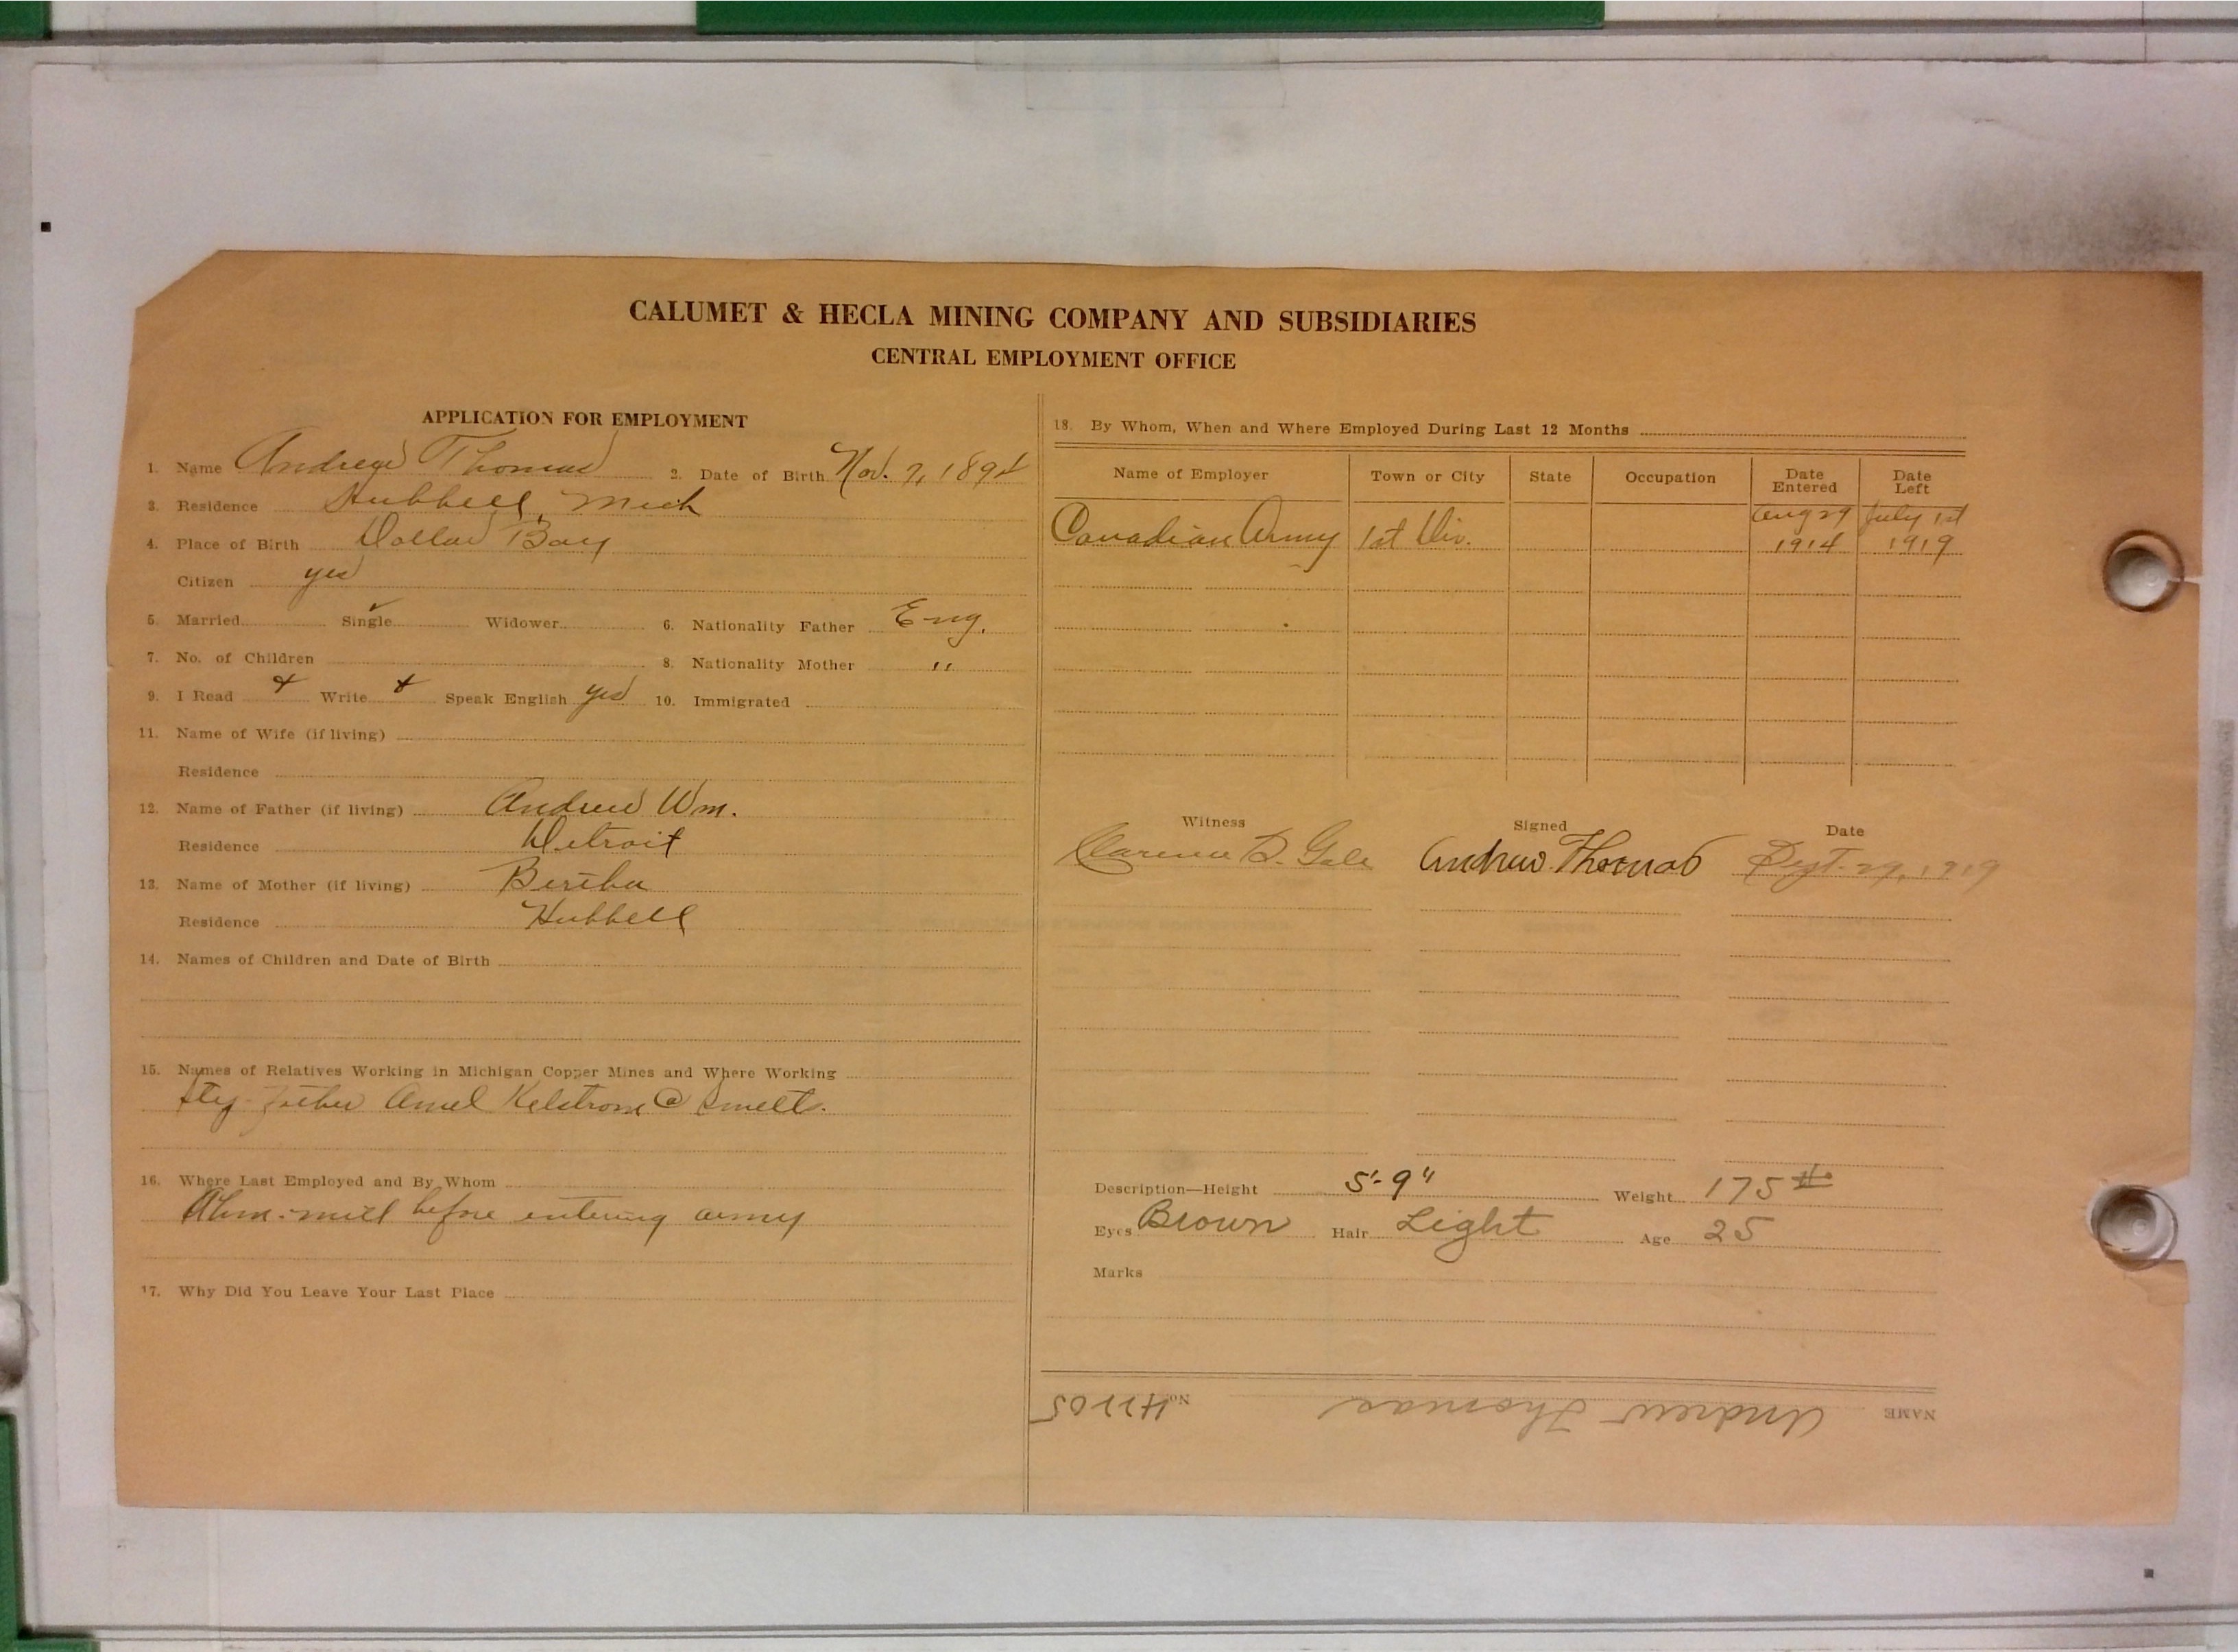 CALUMET & HECLA MINING COMPANY AND SUBSIDIARIES
CENTRAL EMPLOYMENT OFFICE
APPLICATION FOR EMPLOYMENT
1. Name Andrew Thomas 2. Date of Birth Nov. 7, 1894
3. Residence Hubbell, Mich
4. Place of Birth Dollar Bay
Citizen yes
5. Married Single ✓ Widower 6. Nationality Father Eng.
7. No. of Children 8. Nationality Mother "
9. I Read Write Speak English yes 10. Immigrated
11. Name of Wife (if living)
Residence
12. Name of Father (if living) Andrew Wm.
Residence Detroit
13. Name of Mother (if living) Bertha
Residence Hubbell
14. Names of Children and Date of Birth
15. Names of Relatives Working in Michigan Copper Mines and Where Working
Step Father Amel Kelstrom @ Smelt.
16. Where Last Employed and By Whom
Ahm. mill before entering army
17. Why Did You Leave Your Last Place
18. By Whom, When and Where Employed During Last 12 Months
Name of Employer Town or City State Occupation Date Entered Date Left
Canadian Army 1st Div. Aug 29 1914 July 1st 1919
Witness Signed Date
Clarence D. Gale Andrew Thomas Sept. 29, 1919
Description—Height 5'-9" Weight 175 #
Eyes Brown Hair Light Age 25
Marks
NAME Andrew Thomas No. 41105